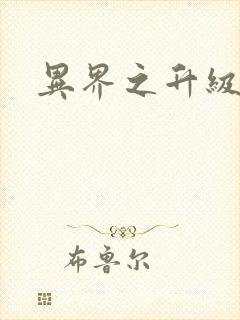 異界之升級
布鲁尔